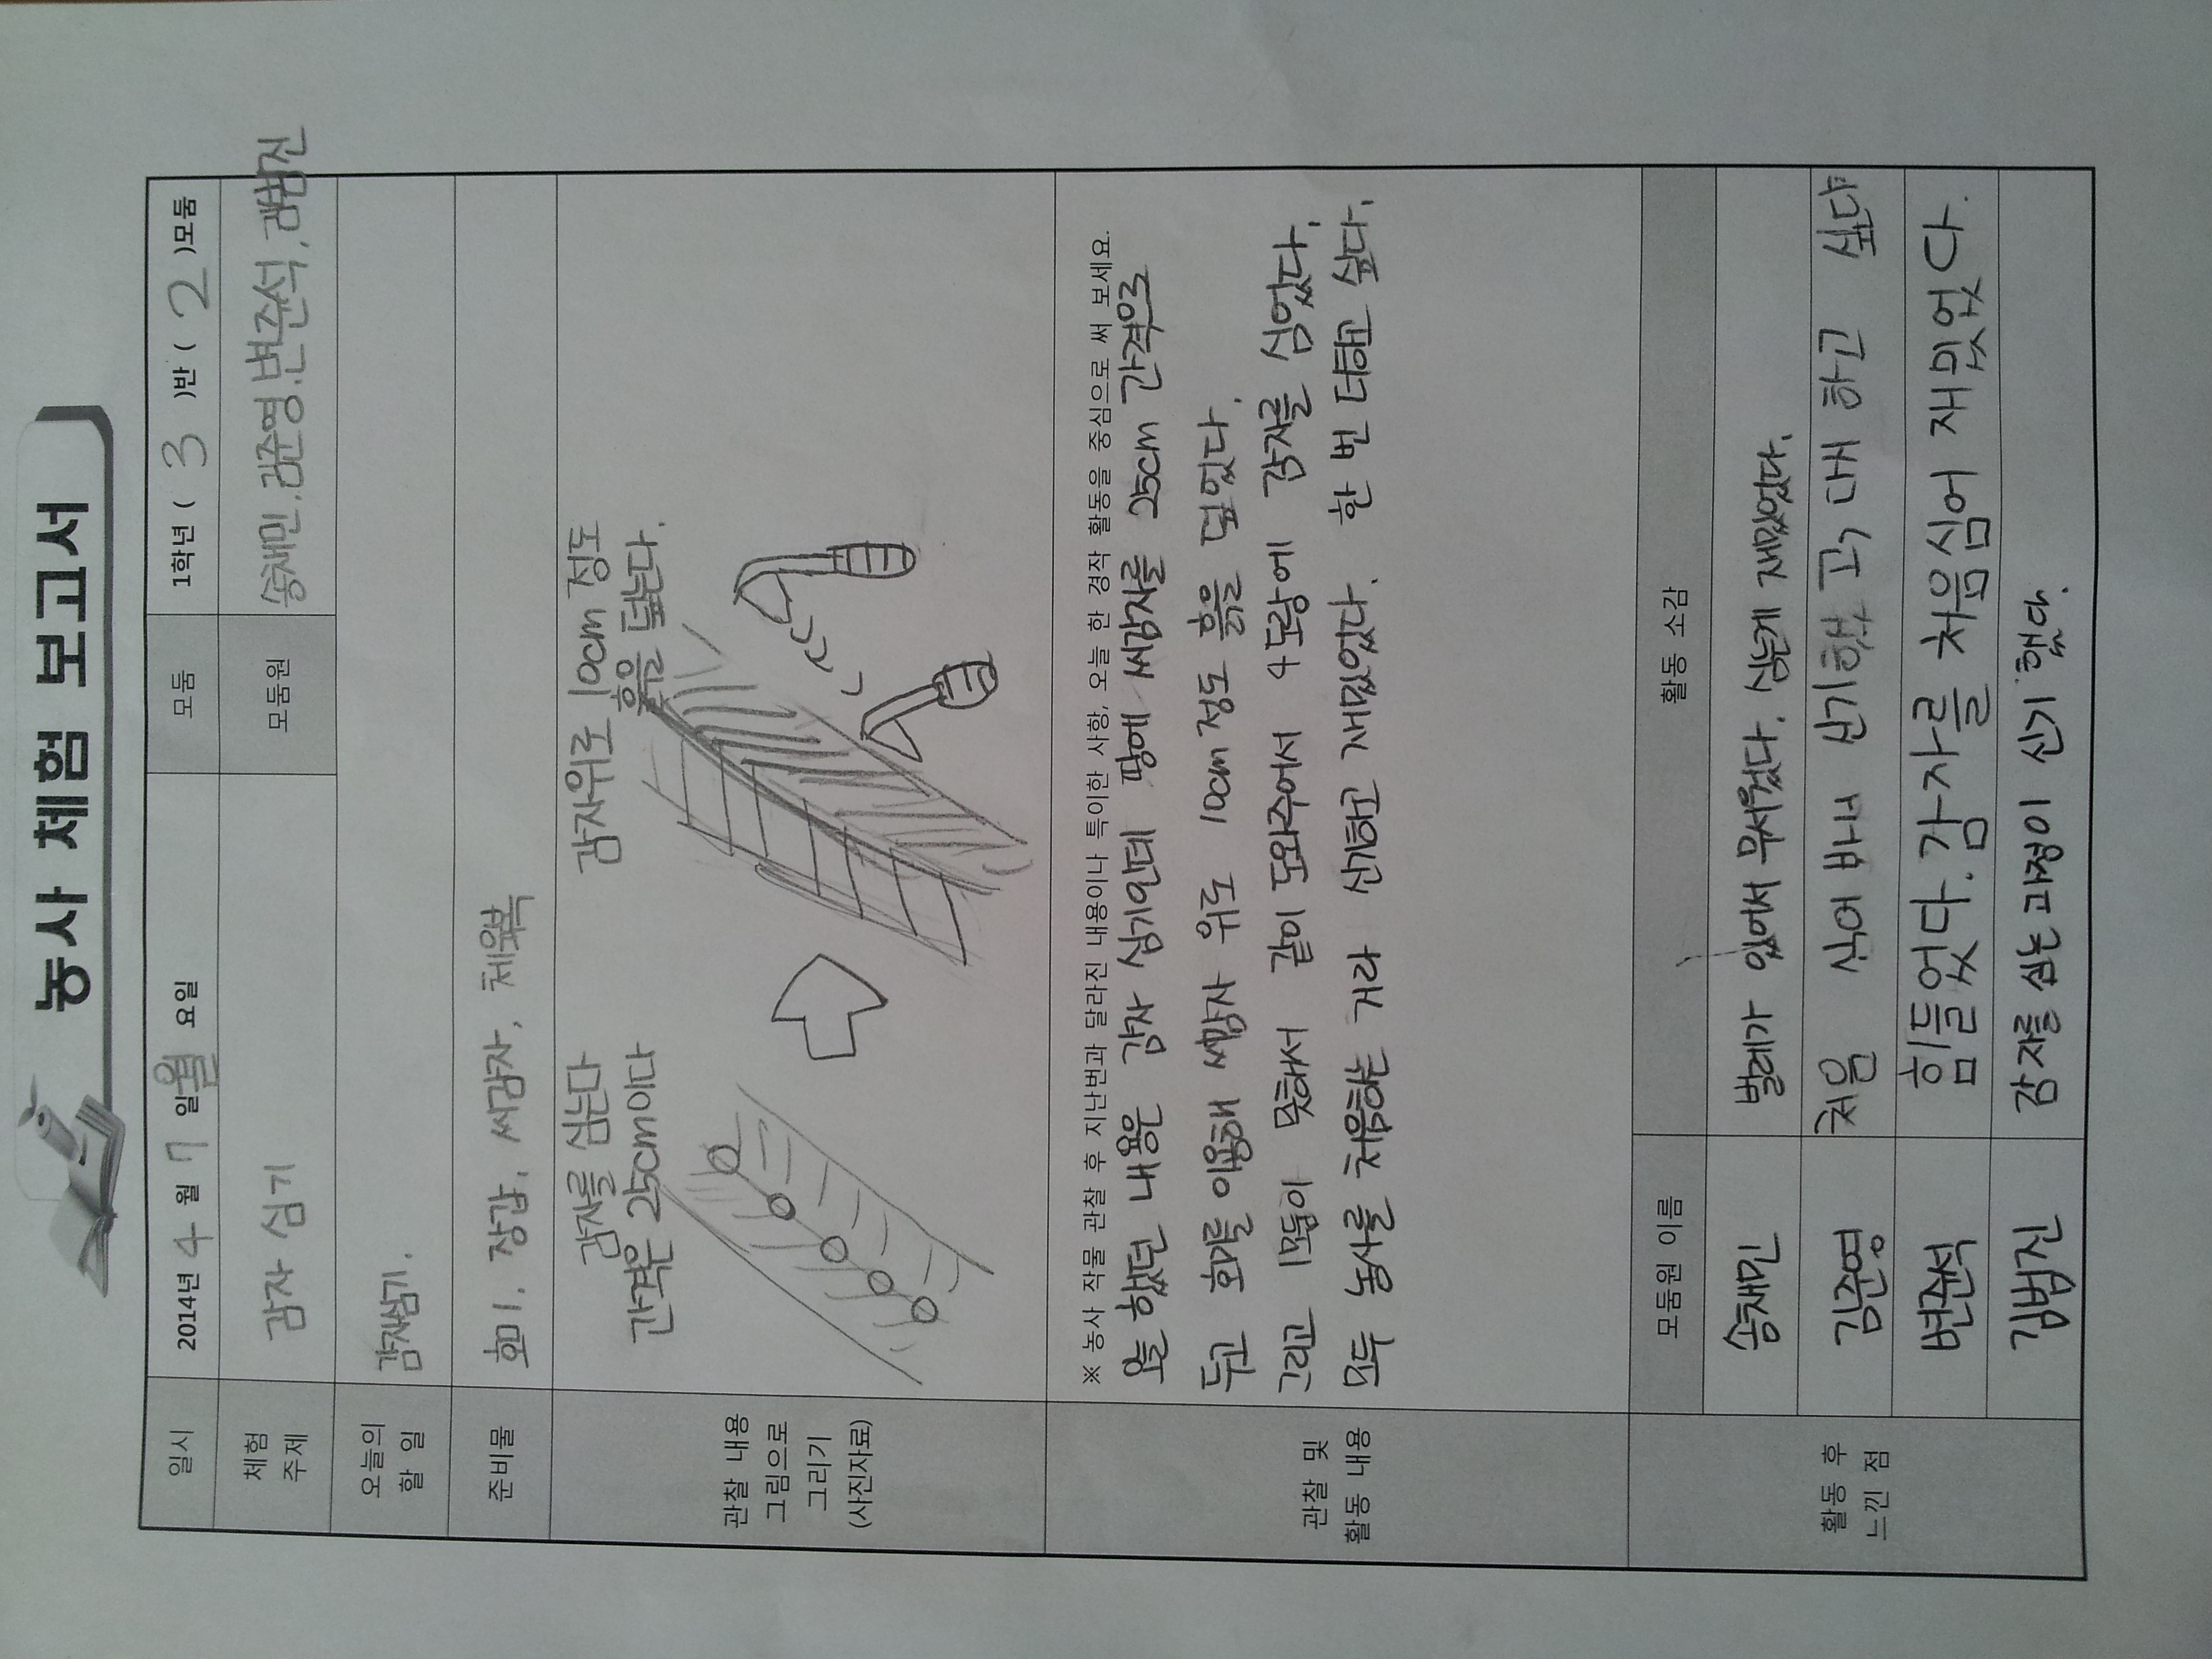 농사 체험 보고서
일시 2014년 4 월 7 일 월 요일 모둠 1학년 ( 3 )반 ( 2 )모둠
체험 주제 감자 심기 모둠원 송채민, 김준영, 변준석, 김범진
오늘의 할 일 감자심기.
준비물 호미, 장갑, 씨감자, 체육복
관찰 내용
그림으로
그리기
(사진자료)
감자를 심는다
간격은 25cm이다
감자위로 10cm 정도
흙을 덮는다.
관찰 및
활동 내용
※ 농사 작물 관찰 후 지난번과 달라진 내용이나 특이한 사항, 오늘 한 경작 활동을 중심으로 써 보세요.
오늘 했던 내용은 감자 심기인데 땅에 씨감자를 25cm 간격으로
두고 호미를 이용해 씨감자 위로 10cm 정도 흙을 덮었다.
그리고 1모둠이 못해서 같이 도와주어서 4도랑에 감자를 심었다.
모두 농사를 처음하는 거라 신기하고 재밌었다. 한 번 더하고 싶다.
활동 후
느낀 점
모둠원 이름 활동 소감
송채민 벌레가 있어서 무서웠다. 심는게 재밌었다.
김준영 처음 심어 봐서 신기했고, 또 하고 싶다
변준석 힘들었다. 감자를 처음심어 재밌었다.
김범진 감자를 심는 과정이 신기 했다.